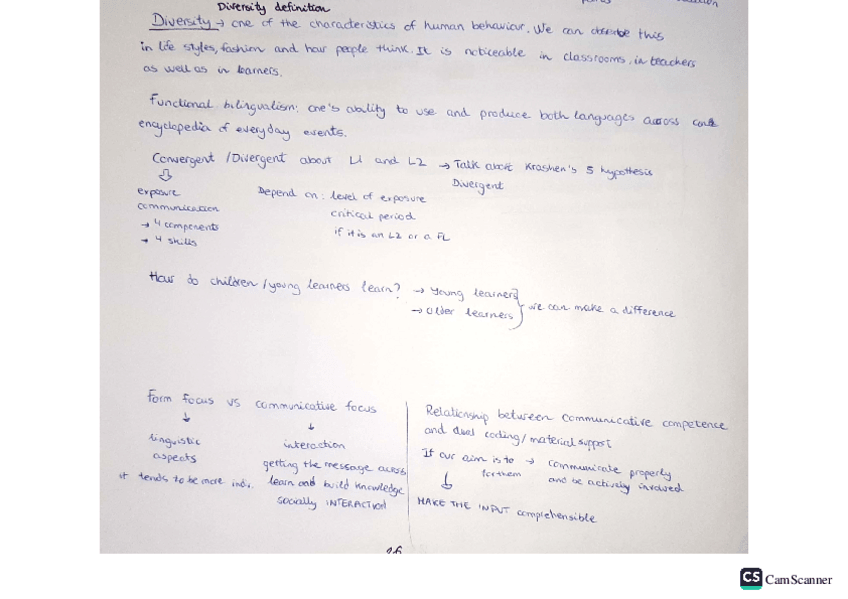 Diversity definition
Diversity → one of the characteristics of human behaviour. We can observe this
in life styles, fashion and how people think. It is noticeable in classrooms, in teachers
as well as in learners.
Functional bilingualism: one's ability to use and produce both languages across
encyclopedia of everyday events.
Convergent / Divergent about L1 and L2 → Talk about Krashen's 5 hypothesis
Divergent
exposure
communication
→ 4 components
→ 4 skills
Depend on: level of exposure
critical period
if it is an L2 or a FL
How do children / young learners learn? → Young learners
→ Older learners
we can make a difference
Form focus vs communicative focus
↓ ↓
linguistic
aspects
it tends to be more indiv.
interaction
getting the message across
learn and build knowledge
socially INTERACTION
Relationship between communicative competence
and dual coding / material support
If our aim is to → communicate properly
for them and be actively involved
↓
MAKE THE INPUT comprehensible
CS CamScanner